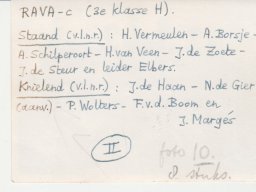 RAVA-C (3e klasse H).
Staand (v.l.n.r.) : H. Vermeulen - A. Borsje -
A. Schilperoort - H. van Veen - J. de Zoete -
J. de Steur en leider Elbers.
Knielend (v.l.n.r.) : J. de Haan - N. de Gier
(aanv.) - P. Wolters - F. v.d. Boom en
J. Margés
III
foto 10.
8 stuks.